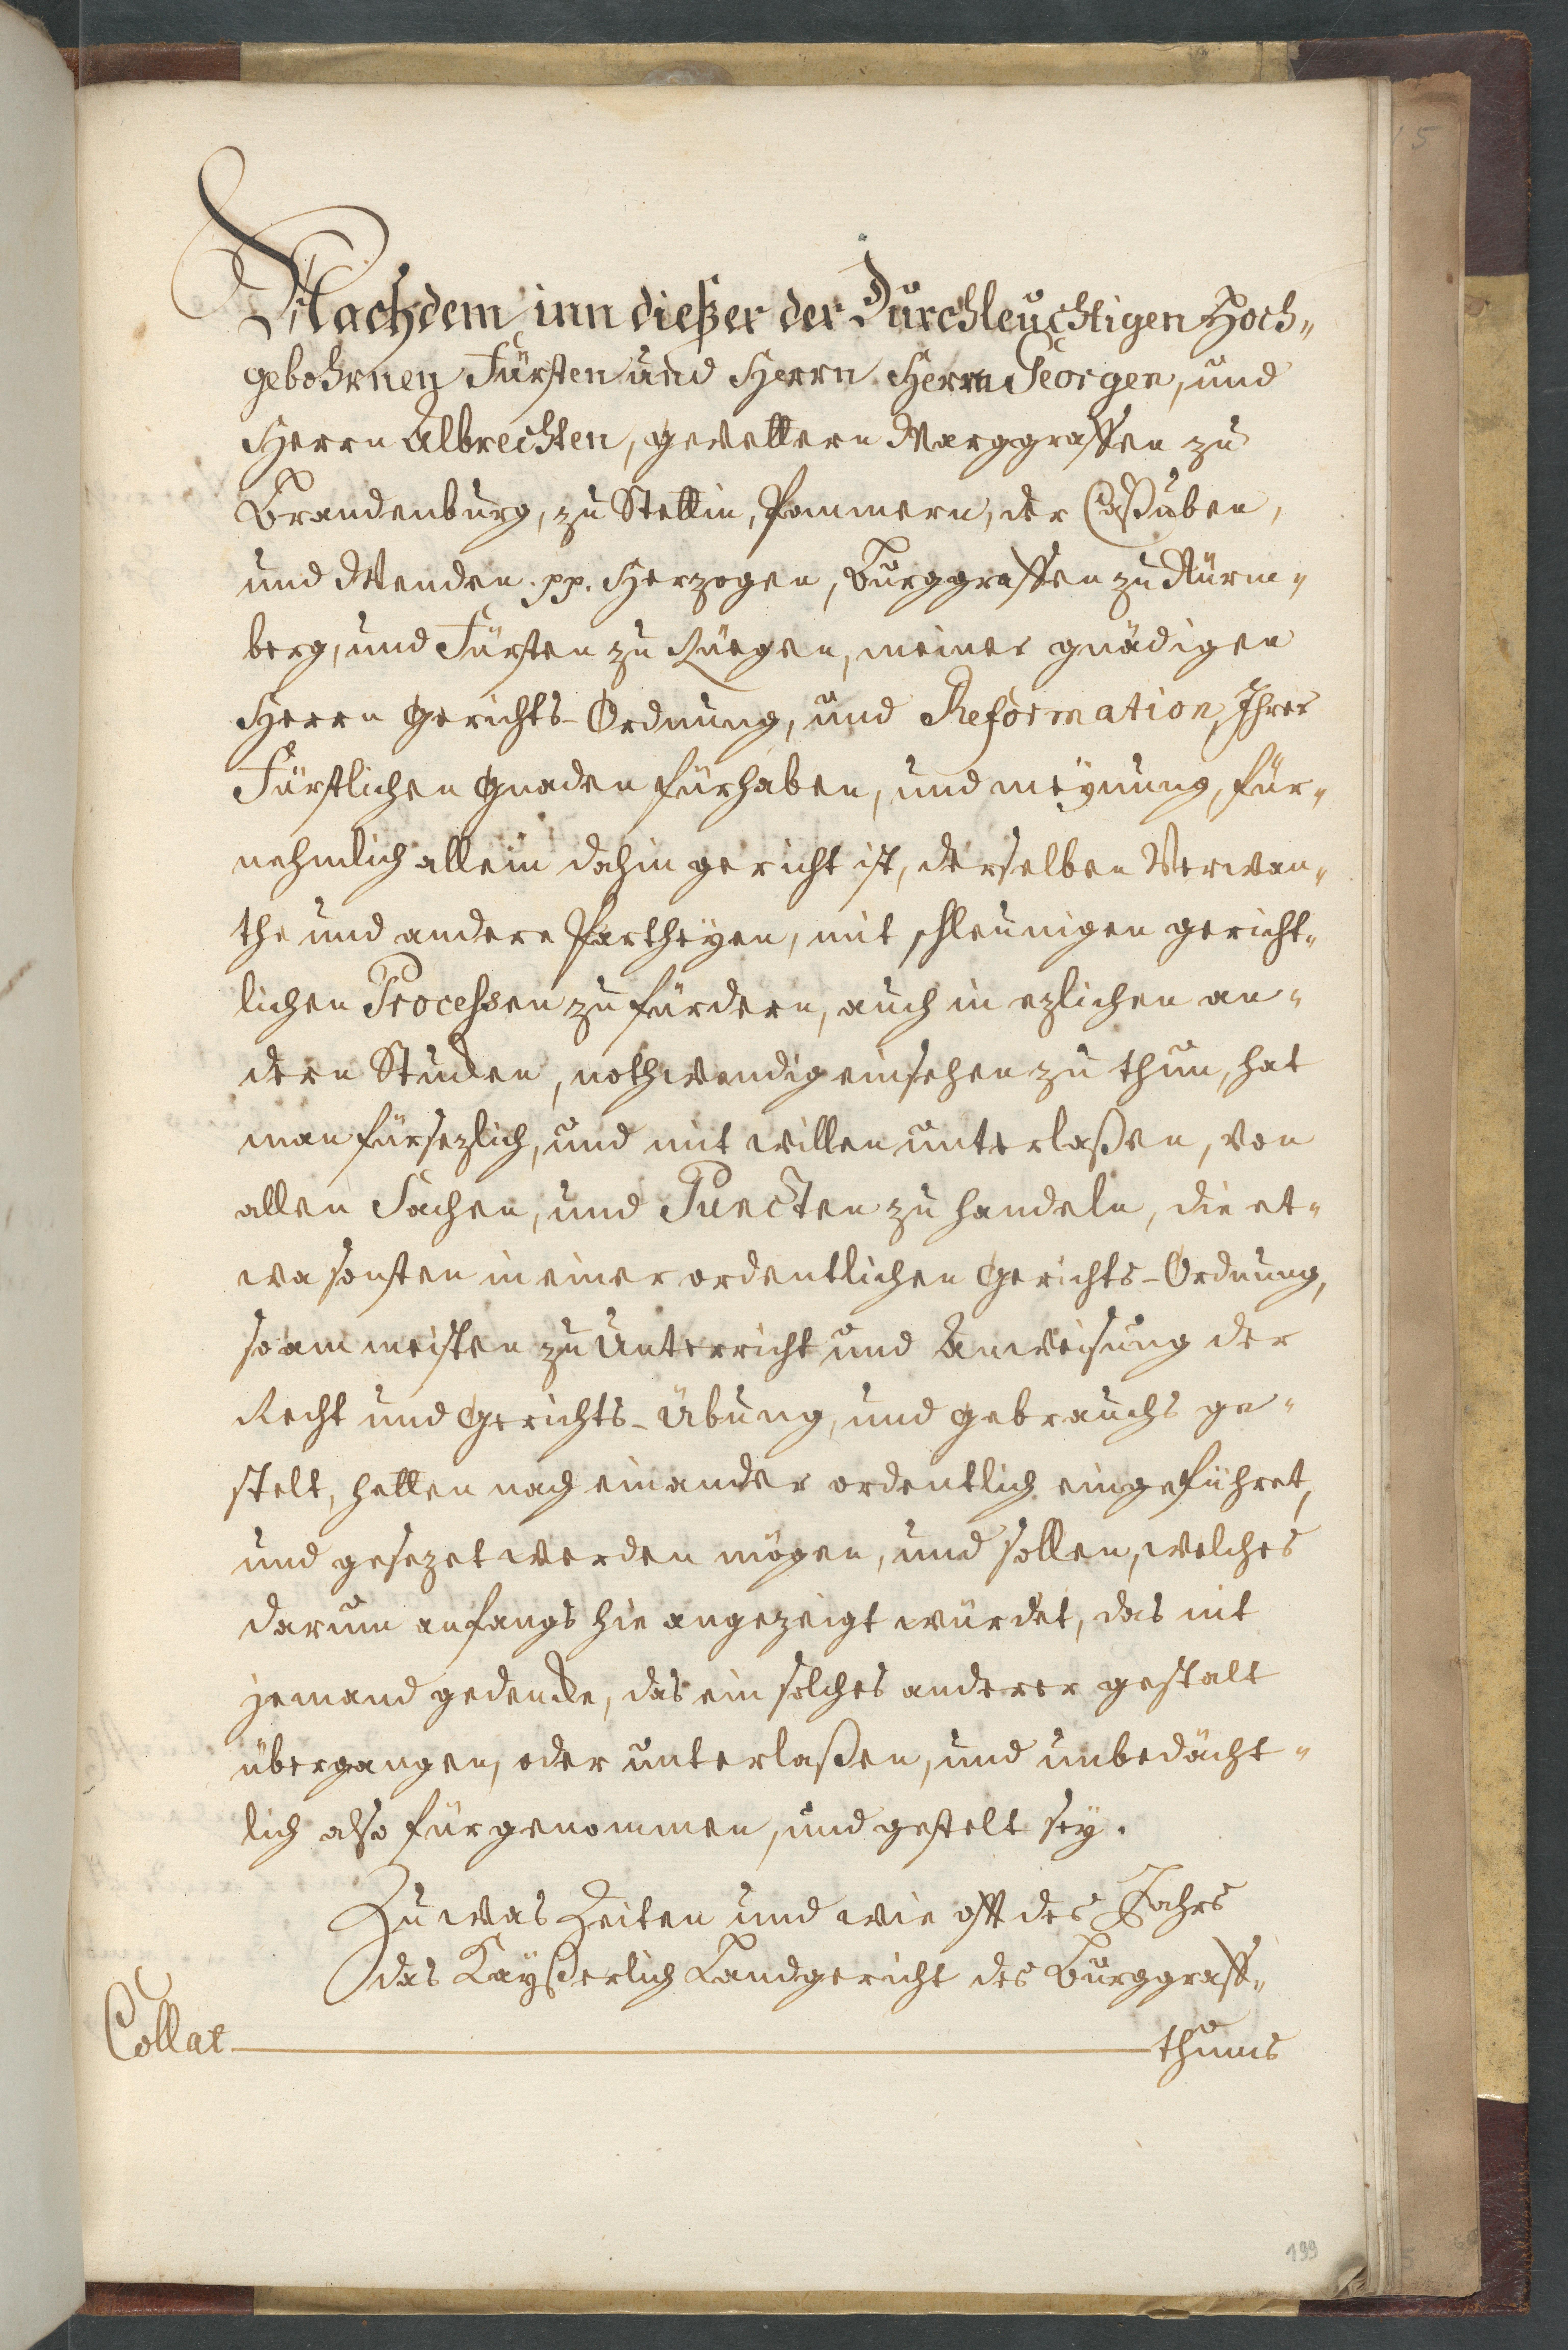 Nachdem inn dießer der Durchleuchtigen Hoch„
gebohrnen Fürsten und Herrn Herrn Georgen, und
Herrn Albrechten, gevettern Marggraffen zu
Brandenburg, zu Stettin, Pommern, der Caßuben,
und Wenden. pp. Herzogen, Burggraffen zu Nürm„
berg, und Fürsten zu Rüegen, meiner gnädigen
Herrn Gerichts-Ordnung, und Reformation, Ihrer
Fürstlichen Gnaden fürhaben, und meÿnung, für„
nehmlich allein dahin gericht ist, derselben Verwan„
the und andere Partheÿen, mit schleunigen gericht„
lichen Processen zu fürdern, auch in ezlichen an„
dern Stucken, nothwendig einsehen zu thun, hat
man fürsezlich, und mit willen unterlaßen, von
allen Sachen, und Puncten zu handeln, die et„
wa sonsten in einer ordentlichen Gerichts-Ordnung,
so am meisten zu Unterricht und Anweisung der
Recht und Gerichts-Übung, und gebrauchs ge„
stelt, hetten nach einander ordentlich eingeführet,
und gesezet werden mögen, und sollen, welches
darum anfangs hie angezeigt würdet, das nit
jemand gedencke, das ein solches anderer gestalt
übergangen, oder unterlaßen, und unbedächt„
lich also fürgenommen, und gestelt seÿ.
Zu was Zeiten und wie offt des Jahrs
das Kaÿßerlich Landgericht des Burggraff„
Collat thums
199